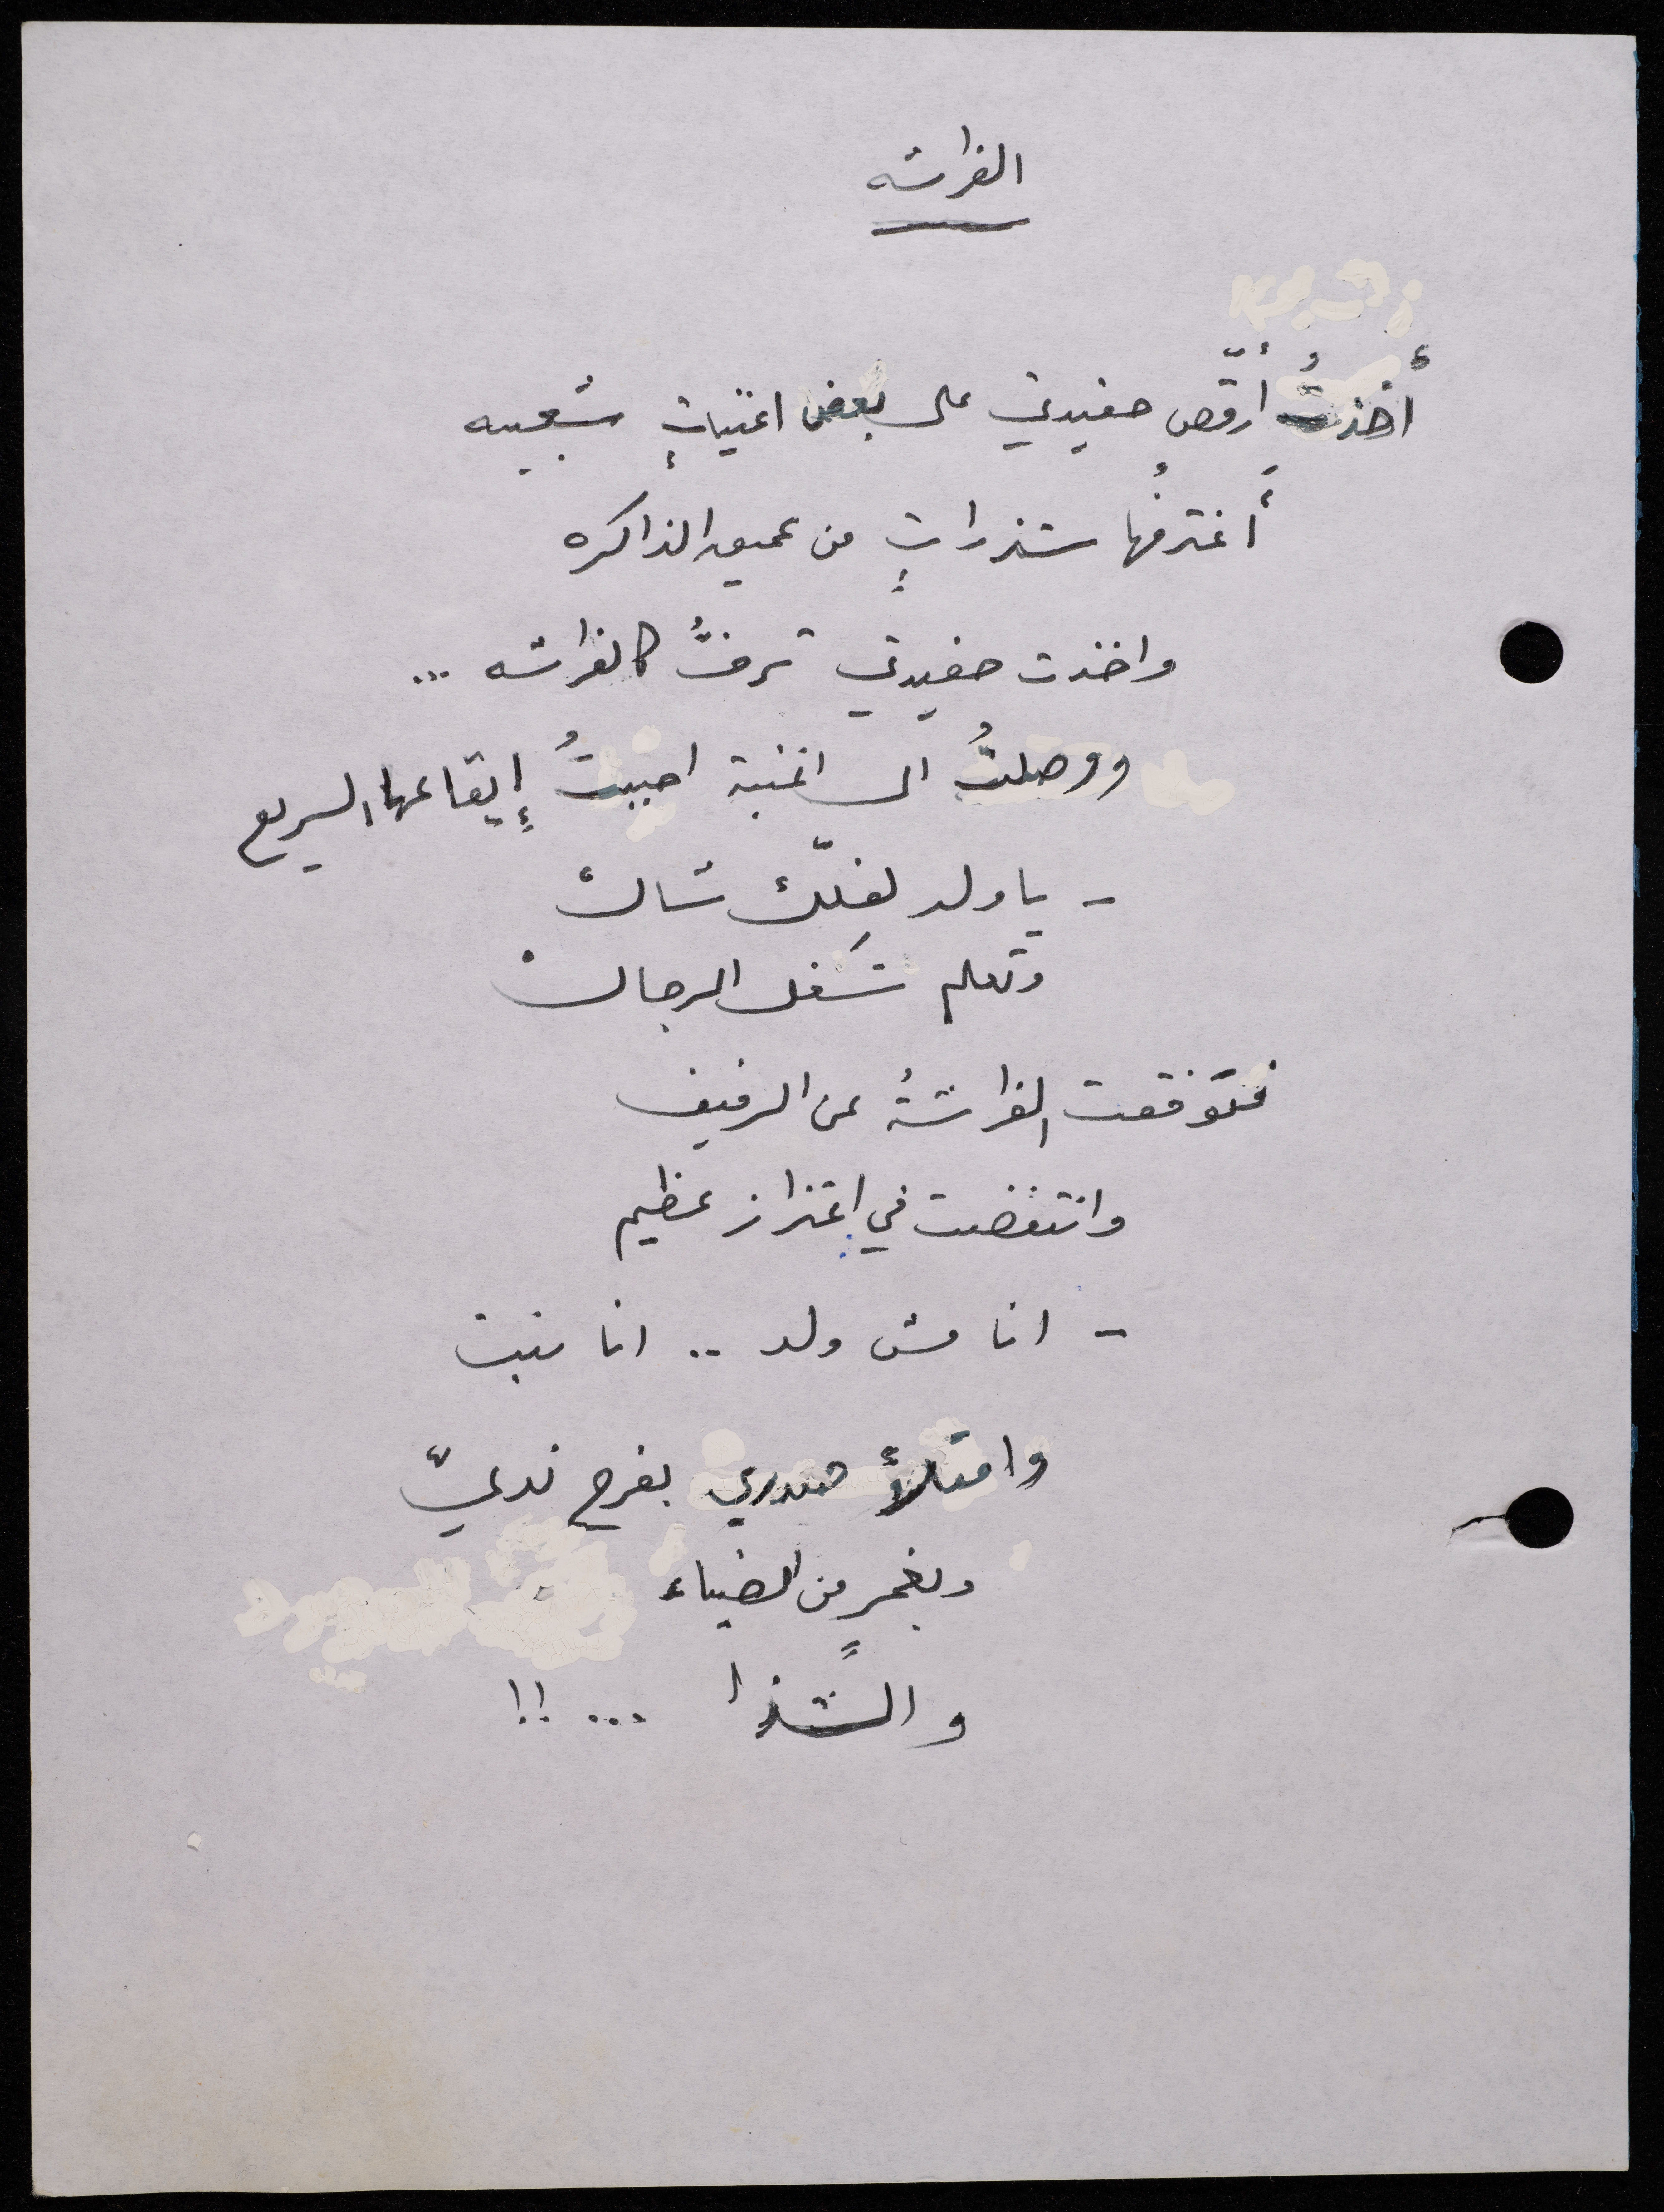 الفراشه
أخذتُ أرقّص حفيدتي على بعض اغنياتٍ شعبيه
أَغترفُها شذراتٍ من عميق الذاكره
واخذت حفيدتي ترفُّ كالفراشه ...
ووصلتُ الى اغنية احببتُ إيقاعها السريع
- يا ولد لفلّك شالْ
وتعلم شَغل الرجالْ
فتوقفت الفراشةُ عن الرفيف
وانتفضت في اعتزاز عظيم
- انا مش ولد .. انا بنت
وامتلأَ صدري بفرح نديّ
وبغمرٍ من الضياء
والشَّذا ... !!